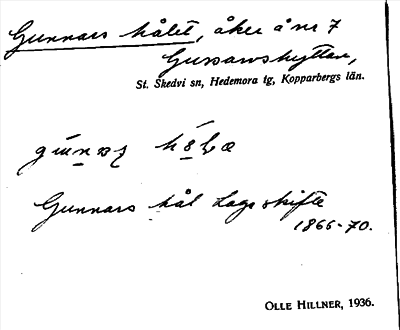 Gunnars hålet, åker å nr 7
Gussarshyttan,
St. Skedvi sn, Hedemora tg, Kopparbergs län.
Gunnars hål Laga skifte
1866-70.
OLLE HILLNER, 1936.